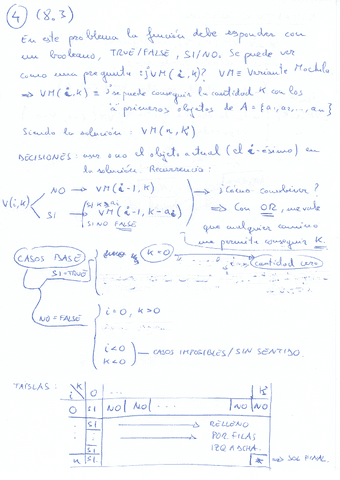 4 (8.3)
En este problema la función debe responder con
un booleano, TRUE/FALSE, SI/NO. Se puede ver
como una pregunta: ¿VM(i,k)? VM = Variante Mochila
⇒ VM(i,k) = ¿se puede conseguir la cantidad K con los
i primeros objetos de A = {a₁, a₂, ..., aₙ}
Siendo la solución: VM(n,K)
DECISIONES: uso o no el objeto actual (el i-ésimo) en
la solución. Recurrencia:
V(i,k)
NO → VM(i-1,k)
SI → VM(i-1,k-aᵢ)
SINO FALSE
→ ¿Cómo combinar?
⇒ Con OR, me vale
que cualquier camino
me permita conseguir K.
CASOS BASE
SI=TRUE
k=0
cantidad cero
NO=FALSE
i=0, k>0
i<0
k<0
CASOS IMPOSIBLES / SIN SENTIDO.
TABLAS:
i k 0 ... K
0 SI NO NO ... NO NO
: SI → RELLENO
: → POR FILAS
: SI IZQ A DCHA.
n SI * ⇒ SOL FINAL.